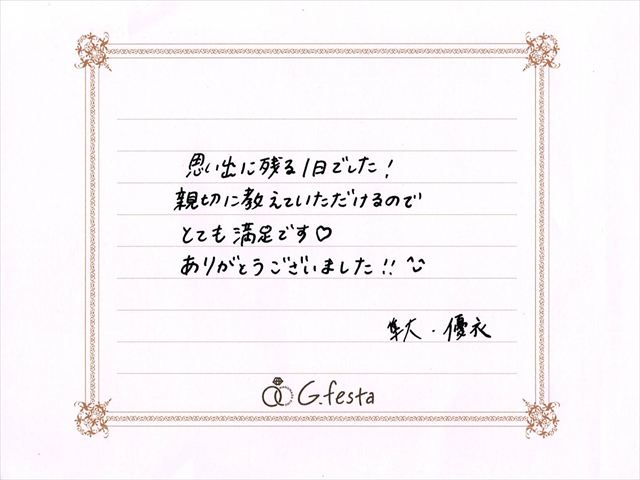 思い出に残る1日でした!
親切に教えていただけるので
とても満足です♡
ありがとうございました!!
隼大・優衣
G.festa